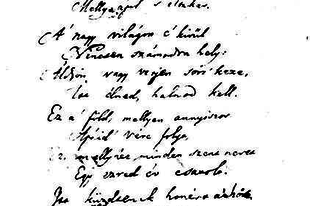 Melly ápol s eltakar.
A' nagy világon e' kivűl
Nincsen számodra hely;
Áldjon vagy verjen sors keze,
Itt élned, halnod kell.
Ez a' föld, mellyen annyiszor
Apáid' vére folyt;
Ez, mellyhez minden szent nevet
Egy ezred év csatolt.
Itt küzdtenek honért a'